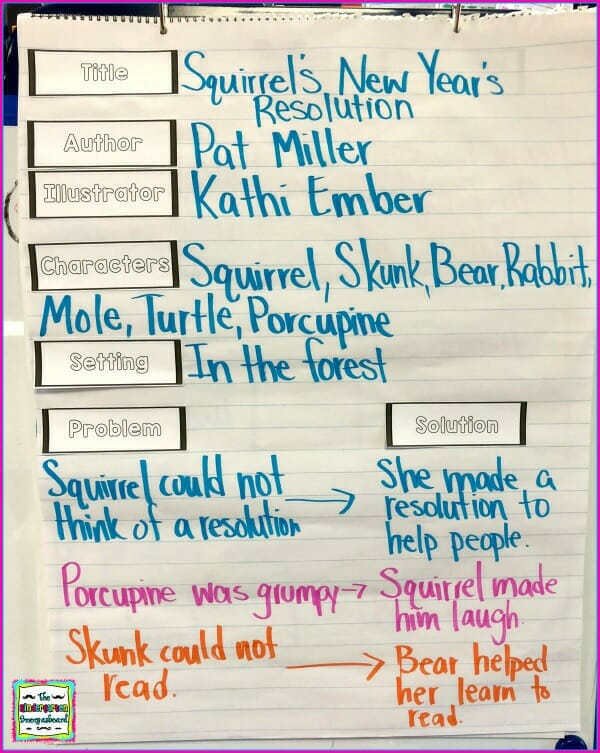 Title Squirrel's New Year's
Resolution
Author Pat Miller
Illustrator Kathi Ember
Characters Squirrel, Skunk, Bear, Rabbit,
Mole, Turtle, Porcupine
Setting In the forest
Problem Solution
Squirrel could not → She made a
think of a resolution resolution to
help people.
Porcupine was grumpy → Squirrel made
him laugh.
Skunk could not → Bear helped
read. her learn to
read.
The
Kindergarten
Smorgasboard